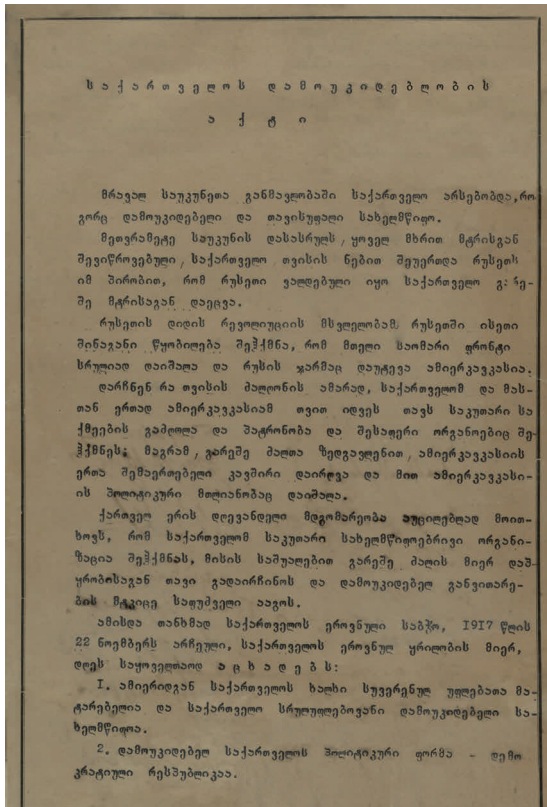 საქართველოს დამოუკიდებლობის
აქტი
მრავალ საუკუნეთა განმავლობაში საქართველო არსებობდა, რო
გორც დამოუკიდებელი და თავისუფალი სახელმწიფო.
მეთვრამეტე საუკუნის დასასრულს, ყოველ მხრით მტრისგან
შევიწროვებული, საქართველო თვისის ნებით შეუერთდა რუსეთს
იმ პირობით, რომ რუსეთი ვალდებული იყო საქართველო გარე-
შე მტრისაგან დაეცვა.
რუსეთის დიდის რევოლიუციის მსვლელობამ რუსეთში ისეთი
შინაგანი წყობილება შეჰქმნა, რომ მთელი საომარი ფრონტი
სრულიად დაიშალა და რუსის ჯარმაც დაუტევა ამიერკავკასია.
დარჩნენ რა თვისის ძალღონის ამარად, საქართველომ და მას-
თან ერთად ამიერკავკასიამ თვით იდვეს თავს საკუთარი სა
ქმეების გაძღოლა და პატრონობა და შესაფერი ორგანოებიც შე-
ჰქმნეს; მაგრამ, გარეშე ძალთა ზედგავლენით, ამიერკავკასიის
ერთა შემაერთებელი კავშირი დაირღვა და მით ამიერკავკასი-
ის პოლიტიკური მთლიანობაც დაიშალა.
ქართველ ერის დღევანდელი მდგომარეობა აუცილებლად მოით-
ხოვს, რომ საქართველომ საკუთარი სახელმწიფოებრივი ორგანი-
ზაცია შეჰქმნას, მისის საშუალებით გარეშე ძალის მიერ დაპ-
ყრობისაგან თავი გადაირჩინოს და დამოუკიდებელ განვითარე-
ბის მტკიცე საფუძველი ააგოს.
ამისდა თანხმად საქართველოს ეროვნული საბჭო, 1917 წლის
22 ნოემბერს არჩეული, საქართველოს ეროვნულ ყრილობის მიერ,
დღეს საყოველთაოდ აცხადებს:
I. ამიერიდგან საქართველოს ხალხი სუვერენულ უფლებათა მა-
ტარებელია და საქართველო სრულუფლებოვანი დამოუკიდებელი სა-
ხელმწიფოა.
2. დამოუკიდებელ საქართველოს პოლიტიკური ფორმა - დემო
კრატიული რესპუბლიკაა.